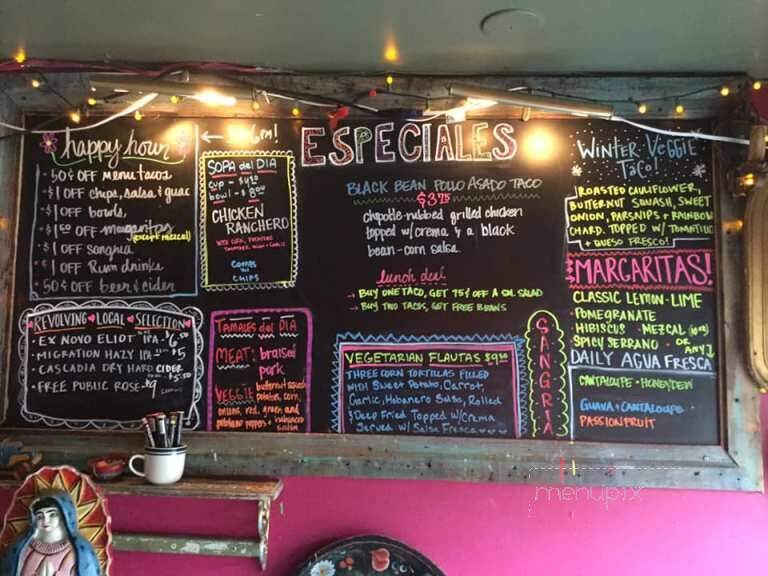 happy hour
50¢ OFF menu tacos
$1 OFF chips, salsa & guac
$1 OFF bowls,
OFF margaritas
(except mezcal)
$1 OFF sangria
$1 OFF Rum drinks
50¢ OFF beer & cider
REVOLVING LOCAL SELECTION
EX NOVO ELIOT IPA $6.50
MIGRATION HAZY IPA $5
CASCADIA DRY HARD CIDER $5.50
FREE PUBLIC ROSE $9
SOPA del DIA
cup - $4
bowl - $8
CHICKEN
RANCHERO
COMES
W/
CHIPS
TAMALES del DIA
MEAT: braised
pork
VEGGIE butternut squash
potatoes, corn,
onions, red, green and
ESPECIALES
BLACK BEAN POLLO ASADO TACO
$3.75
chipotle-rubbed grilled chicken
topped w/ crema & a black
bean-corn salsa
lunch deal
BUY ONE TACO, GET 75¢ OFF A SM. SALAD
BUY TWO TACOS, GET FREE BEANS
VEGETARIAN FLAUTAS $9.00
THREE CORN TORTILLAS FILLED
WITH Sweet Potato, Carrot,
Garlic, Habanero Salsa, Rolled
& Deep Fried Topped W/ Crema
Served W/ Salsa Fresca
SANGRIA
WINTER VEGGIE
TACO!
ROASTED CAULIFLOWER,
BUTTERNUT SQUASH, SWEET
ONION, PARSNIPS + RAINBOW
CHARD. TOPPED W/ TOMATILLO
+ QUESO FRESCO!
MARGARITAS!
CLASSIC LEMON-LIME
POMEGRANATE
HIBISCUS · MEZCAL
SPICY SERRANO · OR ANY
DAILY AGUA FRESCA
CANTALOUPE · HONEYDEW
GUAVA + CANTALOUPE
PASSIONFRUIT
menupix